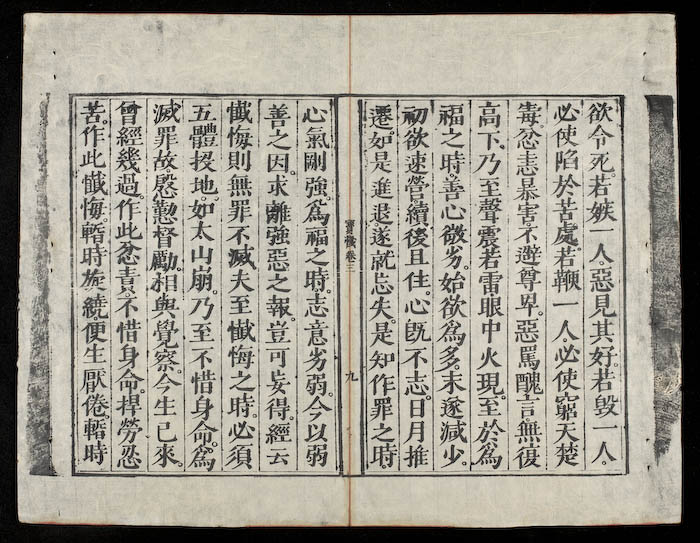 欲令死。若嫉一人。惡見其好。若毀一人。
必使陷於苦處。若鞭一人。必使窮天楚
毒。忿恚暴害。不避尊卑。惡罵醜言。無復
高下。乃至聲震若雷。眼中火現。至於爲
福之時。善心微劣。始欲爲多。末遂減少。
初欲速營。續後且住。心既不志。日月推
遷。如是進退。遂就忘失。是知作罪之時。
寶懺卷三 九
心氣剛強。爲福之時。志意劣弱。今以弱
善之因。求離強惡之報。豈可妄得。經云
懺悔則無罪不滅。夫至懺悔之時。必須
五體投地。如太山崩。乃至不惜身命。爲
滅罪故。慇懃督勵。相與覺察。今生已來。
曾經幾過。作此忿責。不惜身命。捍勞忍
苦。作此懺悔。暫時旋繞。便生厭倦。暫時